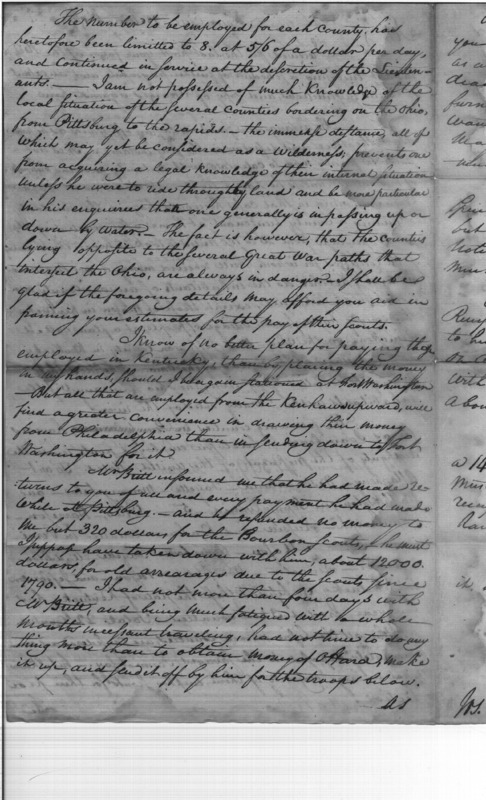 The number to be employed for each county, has
heretofore been limitted to 8. at 5/6 of a dollar per day,
and continued in service at the discretion of the Lieuten-
ants. — I am not possessed of much knowledge of the
local situation of the several Counties bordering on the Ohio,
from Pittsburg to the rapids. — the immense distance, all of
which may yet be considered as a Wilderness; prevents one
from acquiring a legal knowledge of their internal situation
unless he were to ride through by land and be more particular
in his enquiries than one generally is in passing up or
down by Water. — The fact is however, that the Counties
lying opposite to the several Great War paths that
intersect the Ohio, are always in danger — I shall be
glad if the foregoing details may afford you aid in
forming your estimates for the pay of their Scouts.
I know of no better plan for paying those
employed in Kentucky, than by placing the money
in my hands, should I be again stationed at Fort Washington
— But all that are employed from the Kenhawa upward, will
find a greater convenience in drawing their money
from Philadelphia than in sending down to Fort
Washington for it
Mr Britt informed me that he had made re-
turns to you of all and every payment he had made
while at Pittsburg. — and he refunded no money to
me but 320 dollars, for the Bourbon Scouts, he must
I suppose have taken down with him, about 12000.
dollars, for old arrearages due to the Scouts since
1790. — I had not more than four days with
Mr Britt, and being much fatigued with a whole
months incessant traveling, had not time to do any
thing more than to obtain money of O'Hara, make
it up, and send it off by him for the troops below.
As
you
as a
dea
furn
but
note
Mus
to h
on a
With
a 14
Mus
it
Jos.